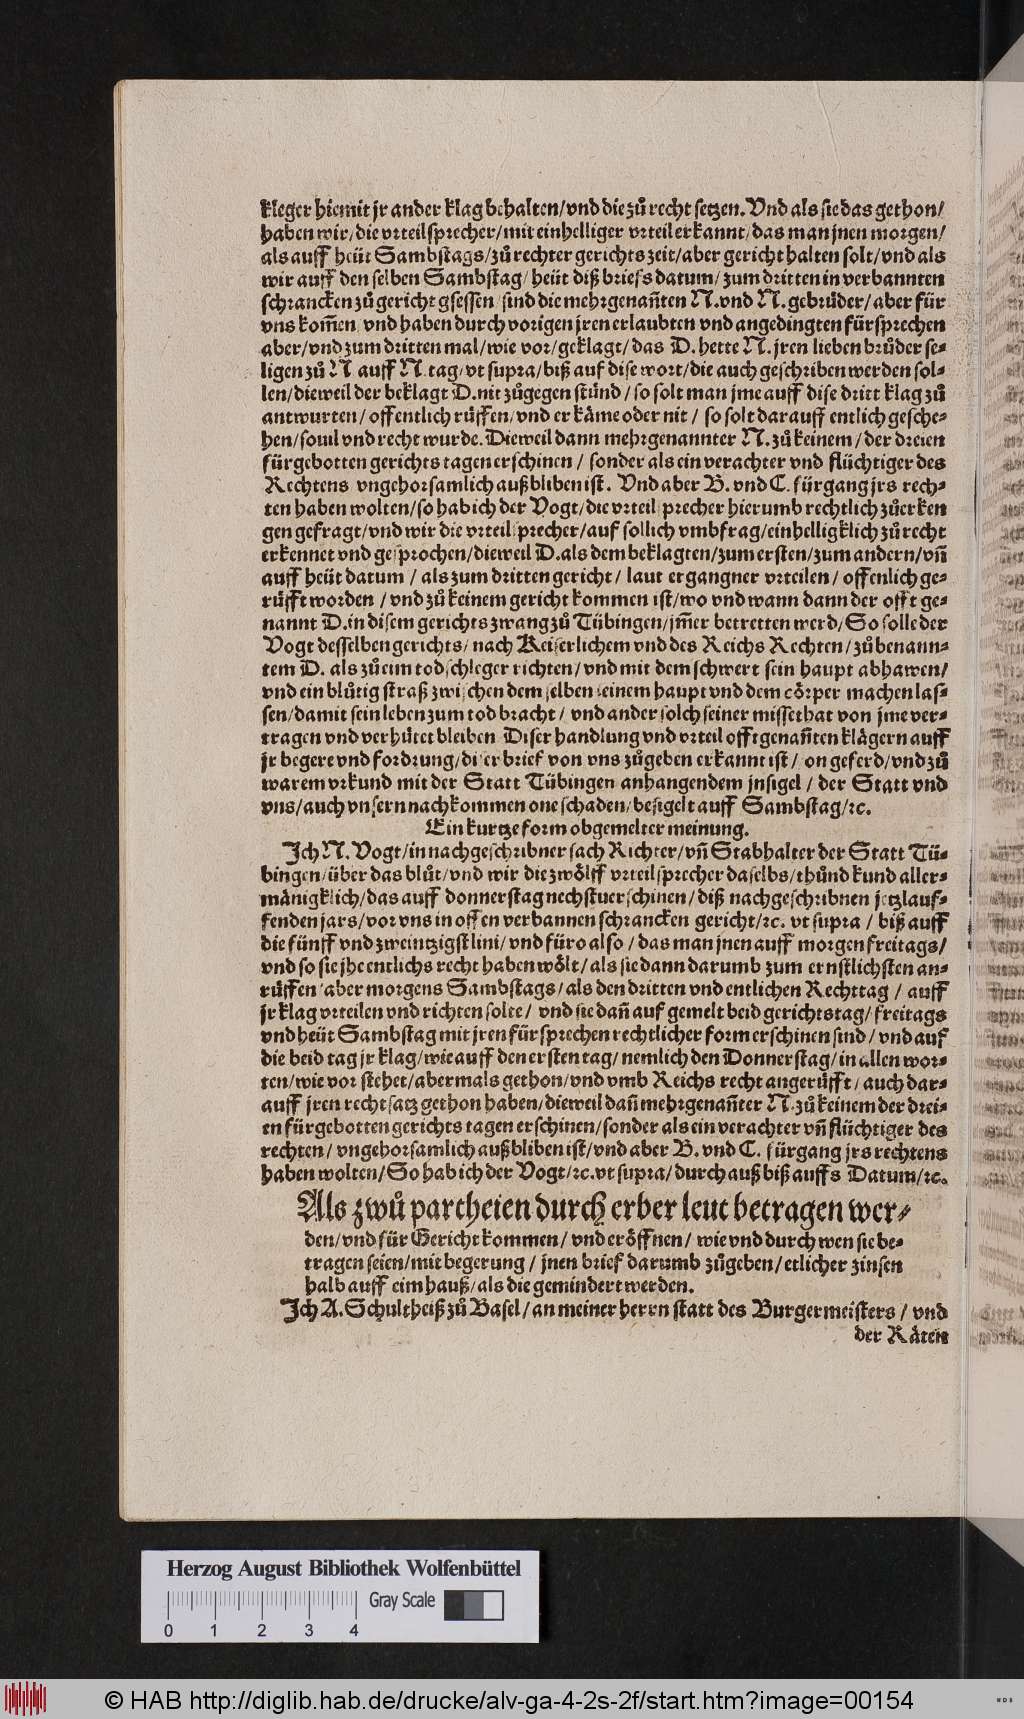 kleger hiemit jr ander klag behalten/vnd die zů recht setzen. Vnd als sie das gethon/
haben wir/die vrteilsprecher/mit einhelliger vrteil erkannt/das man jnen morgen/
als auff heüt Sambstags/zů rechter gerichts zeit/aber gericht halten solt/vnd als
wir auff den selben Sambstag/heüt diß briefs datum/zum dritten in verbannten
schrancken zů gericht gsessen/sind die mehrgenañten N. vnd N. gebrüder/aber für
vns kom̃en/vnd haben durch vorigen jren erlaubten vnd angedingten fürsprechen
aber/vnd zum dritten mal/wie vor/geklagt/das D. hette N. jren lieben brůder se-
ligen zů N auff N. tag/vt supra/biß auf dise wort/die auch geschriben werden sol-
len/dieweil der beklagt D. nit zůgegen stünd/so solt man jme auff dise dritt klag zů
antwurten/offentlich rüffen/vnd er käme oder nit/so solt darauff entlich gesche-
hen/souil vnd recht wurde. Dieweil dann mehrgenannter N. zů keinem/der dreien
fürgebotten gerichts tagen erschinen/sonder als ein verachter vnd flüchtiger des
Rechtens vngehorsamlich außbliben ist. Vnd aber B. vnd C. fürgang jrs rech-
ten haben wolten/so hab ich der Vogt/die vrteilsprecher hierumb rechtlich zůerken
gen gefragt/vnd wir die vrteilsprecher/auf sollich vmbfrag/einhelligklich zů recht
erkennet vnd gesprochen/dieweil D. als dem beklagten/zum ersten/zum andern/vñ
auff heüt datum/als zum dritten gericht/laut ergangner vrteilen/offenlich ge-
rüfft worden/vnd zů keinem gericht kommen ist/wo vnd wann dann der offt ge-
nannt D. in disem gerichts zwang zů Tübingen/jm̃er betretten werd/So solle der
Vogt desselben gerichts/nach Keiserlichem vnd des Reichs Rechten/zů benann-
tem D. als zů eim todschleger richten/vnd mit dem schwert sein haupt abhawen/
vnd ein blůtig straß zwischen dem selben seinem haupt vnd dem cörper machen las-
sen/damit sein leben zum tod bracht/vnd ander solch seiner missethat von jme ver-
tragen vnd verhütet bleiben Diser handlung vnd vrteil offtgenañten klägern auff
jr begere vnd fordrung/diser brief von vns zůgeben erkannt ist/on geferd/vnd zů
warem vrkund mit der Statt Tübingen anhangendem jnsigel/der Statt vnd
vns/auch vnsern nachkommen one schaden/besigelt auff Sambstag/ꝛc.
Ein kurtze form obgemelter meinung.
Jch N. Vogt/in nachgeschribner sach Richter/vñ Stabhalter der Statt Tü-
bingen/über das blůt/vnd wir die zwölff vrteilsprecher daselbs/thůnd kund aller-
mänigklich/das auff donnerstag nechstuerschinen/diß nachgeschribnen jetzlauf-
fenden jars/vor vns in offen verbannen schrancken gericht/ꝛc. vt supra/biß auff
die fünff vnd zweintzigst lini/vnd füro also/das man jnen auff morgen freitags/
vnd so sie jhe entlichs recht haben wölt/als sie dann darumb zum ernstlichsten an-
rüffen/aber morgens Sambstags/als den dritten vnd entlichen Rechttag/auff
jr klag vrteilen vnd richten solte/vnd sie dañ auf gemelt beid gerichtstag/freitags
vnd heüt Sambstag mit jren fürsprechen rechtlicher form erschinen sind/vnd auf
die beid tag jr klag/wie auff den ersten tag/nemlich den Donnerstag/in allen wor-
ten/wie vor stehet/abermals gethon/vnd vmb Reichs recht angerüfft/auch dar-
auff jren rechtsatz gethon haben/dieweil dañ mehrgenañter N. zů keinem der drei-
en fürgebotten gerichts tagen erschinen/sonder als ein verachter vñ flüchtiger des
rechten/vngehorsamlich außbliben ist/vnd aber B. vnd C. fürgang jrs rechtens
haben wolten/So hab ich der Vogt/ꝛc. vt supra/durch auß biß auffs Datum/ꝛc.
Als zwů partheien durch erber leut betragen wer-
den/vnd für Gericht kommen/vnd eröffnen/wie vnd durch wen sie be-
tragen seien/mit begerung/jnen brief darumb zůgeben/etlicher zinsen
halb auff eim hauß/als die gemindert werden.
Jch A. Schultheiß zů Basel/an meiner herrn statt des Burgermeisters/vnd
der Räten
Herzog August Bibliothek Wolfenbüttel
Gray Scale
0 1 2 3 4
© HAB http://diglib.hab.de/drucke/alv-ga-4-2s-2f/start.htm?image=00154